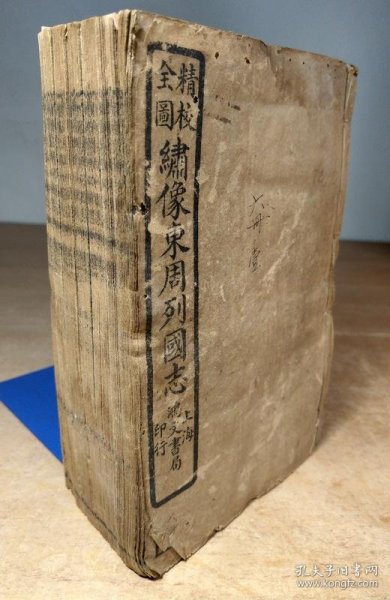 精校
全圖
繡像東周列國志
上海
書局
印行
孔夫子旧书网
www.kongfz.com